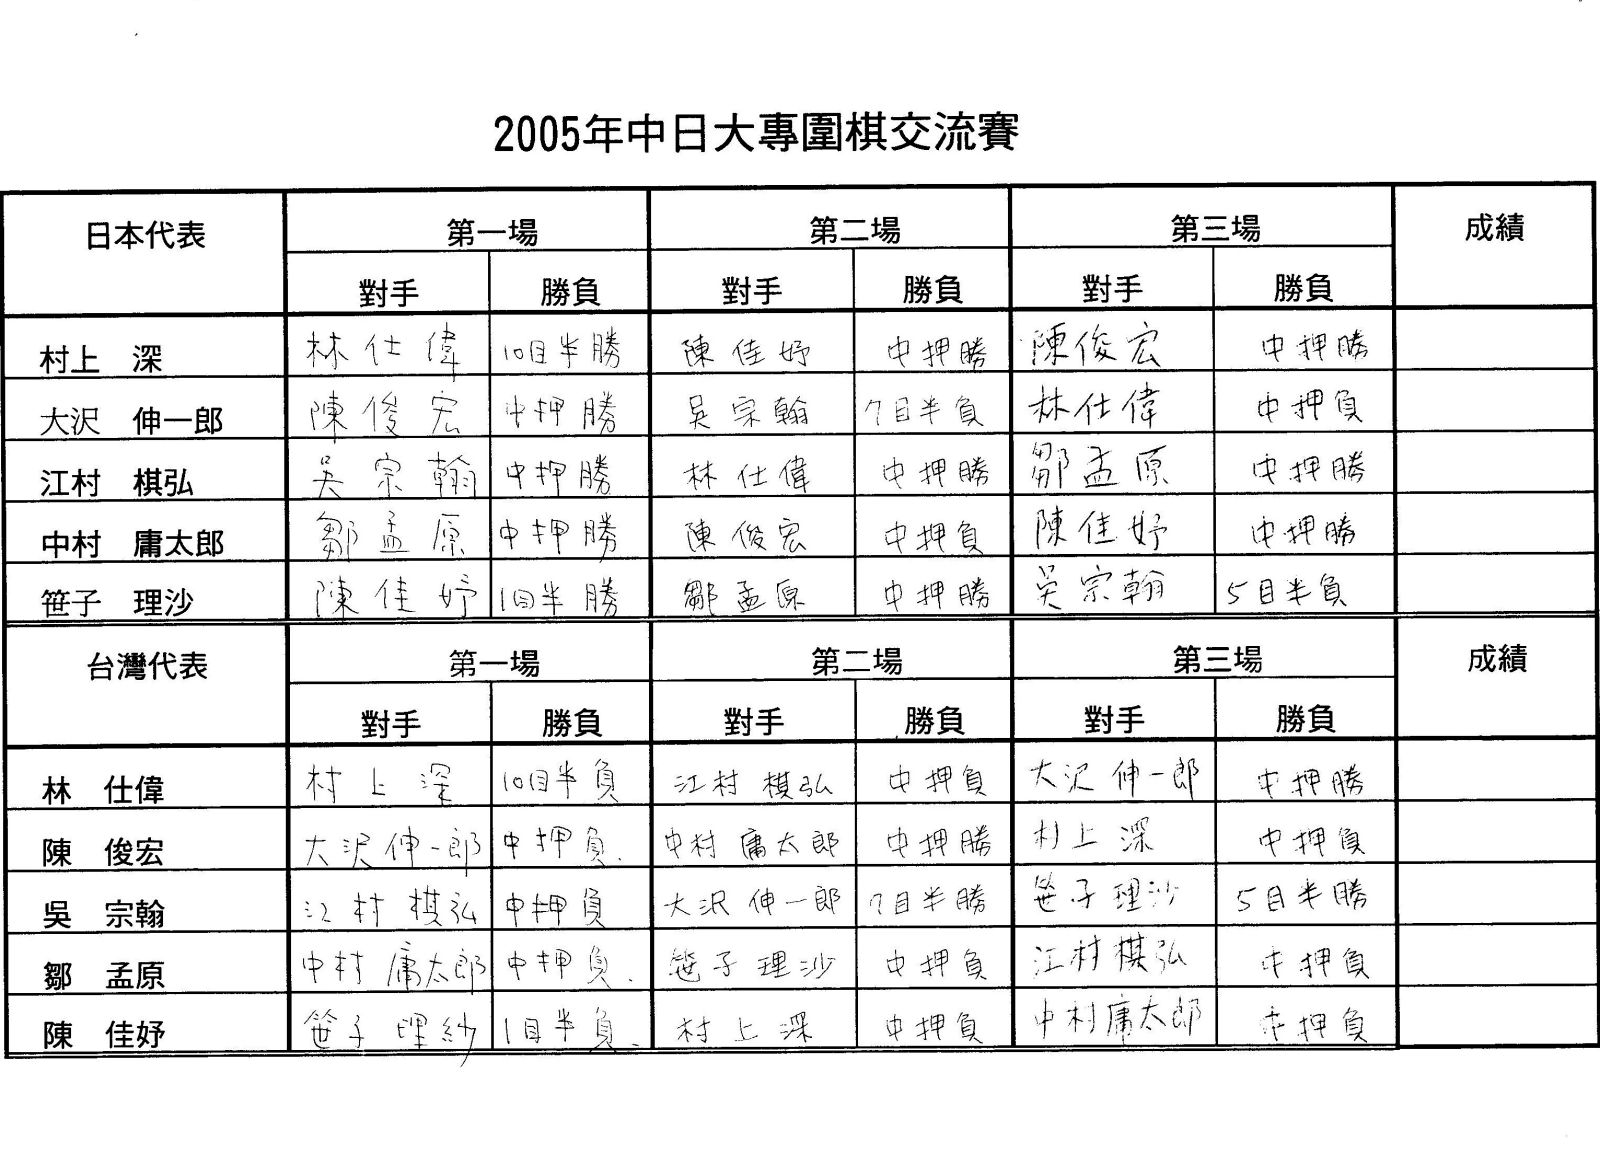 2005年中日大專圍棋交流賽
日本代表 第一場 第二場 第三場 成績
對手 勝負 對手 勝負 對手 勝負
村上 深 林仕偉 10目半勝 陳佳妤 中押勝 陳俊宏 中押勝
大沢 伸一郎 陳俊宏 中押勝 吳宗翰 7目半負 林仕偉 中押負
江村 棋弘 吳宗翰 中押勝 林仕偉 中押勝 鄒孟原 中押勝
中村 庸太郎 鄒孟原 中押勝 陳俊宏 中押負 陳佳妤 中押勝
笹子 理沙 陳佳妤 1目半勝 鄒孟原 中押勝 吳宗翰 5目半負
台灣代表 第一場 第二場 第三場 成績
對手 勝負 對手 勝負 對手 勝負
林 仕偉 村上深 10目半負 江村棋弘 中押負 大沢伸一郎 中押勝
陳 俊宏 大沢伸一郎 中押負. 中村庸太郎 中押勝 村上深 中押負
吳 宗翰 江村棋弘 中押負 大沢伸一郎 7目半勝 笹子理沙 5目半勝
鄒 孟原 中村庸太郎 中押負. 笹子理沙 中押負 江村棋弘 中押負
陳 佳妤 笹子理紗 1目半負. 村上深 中押負 中村庸太郎 中押負